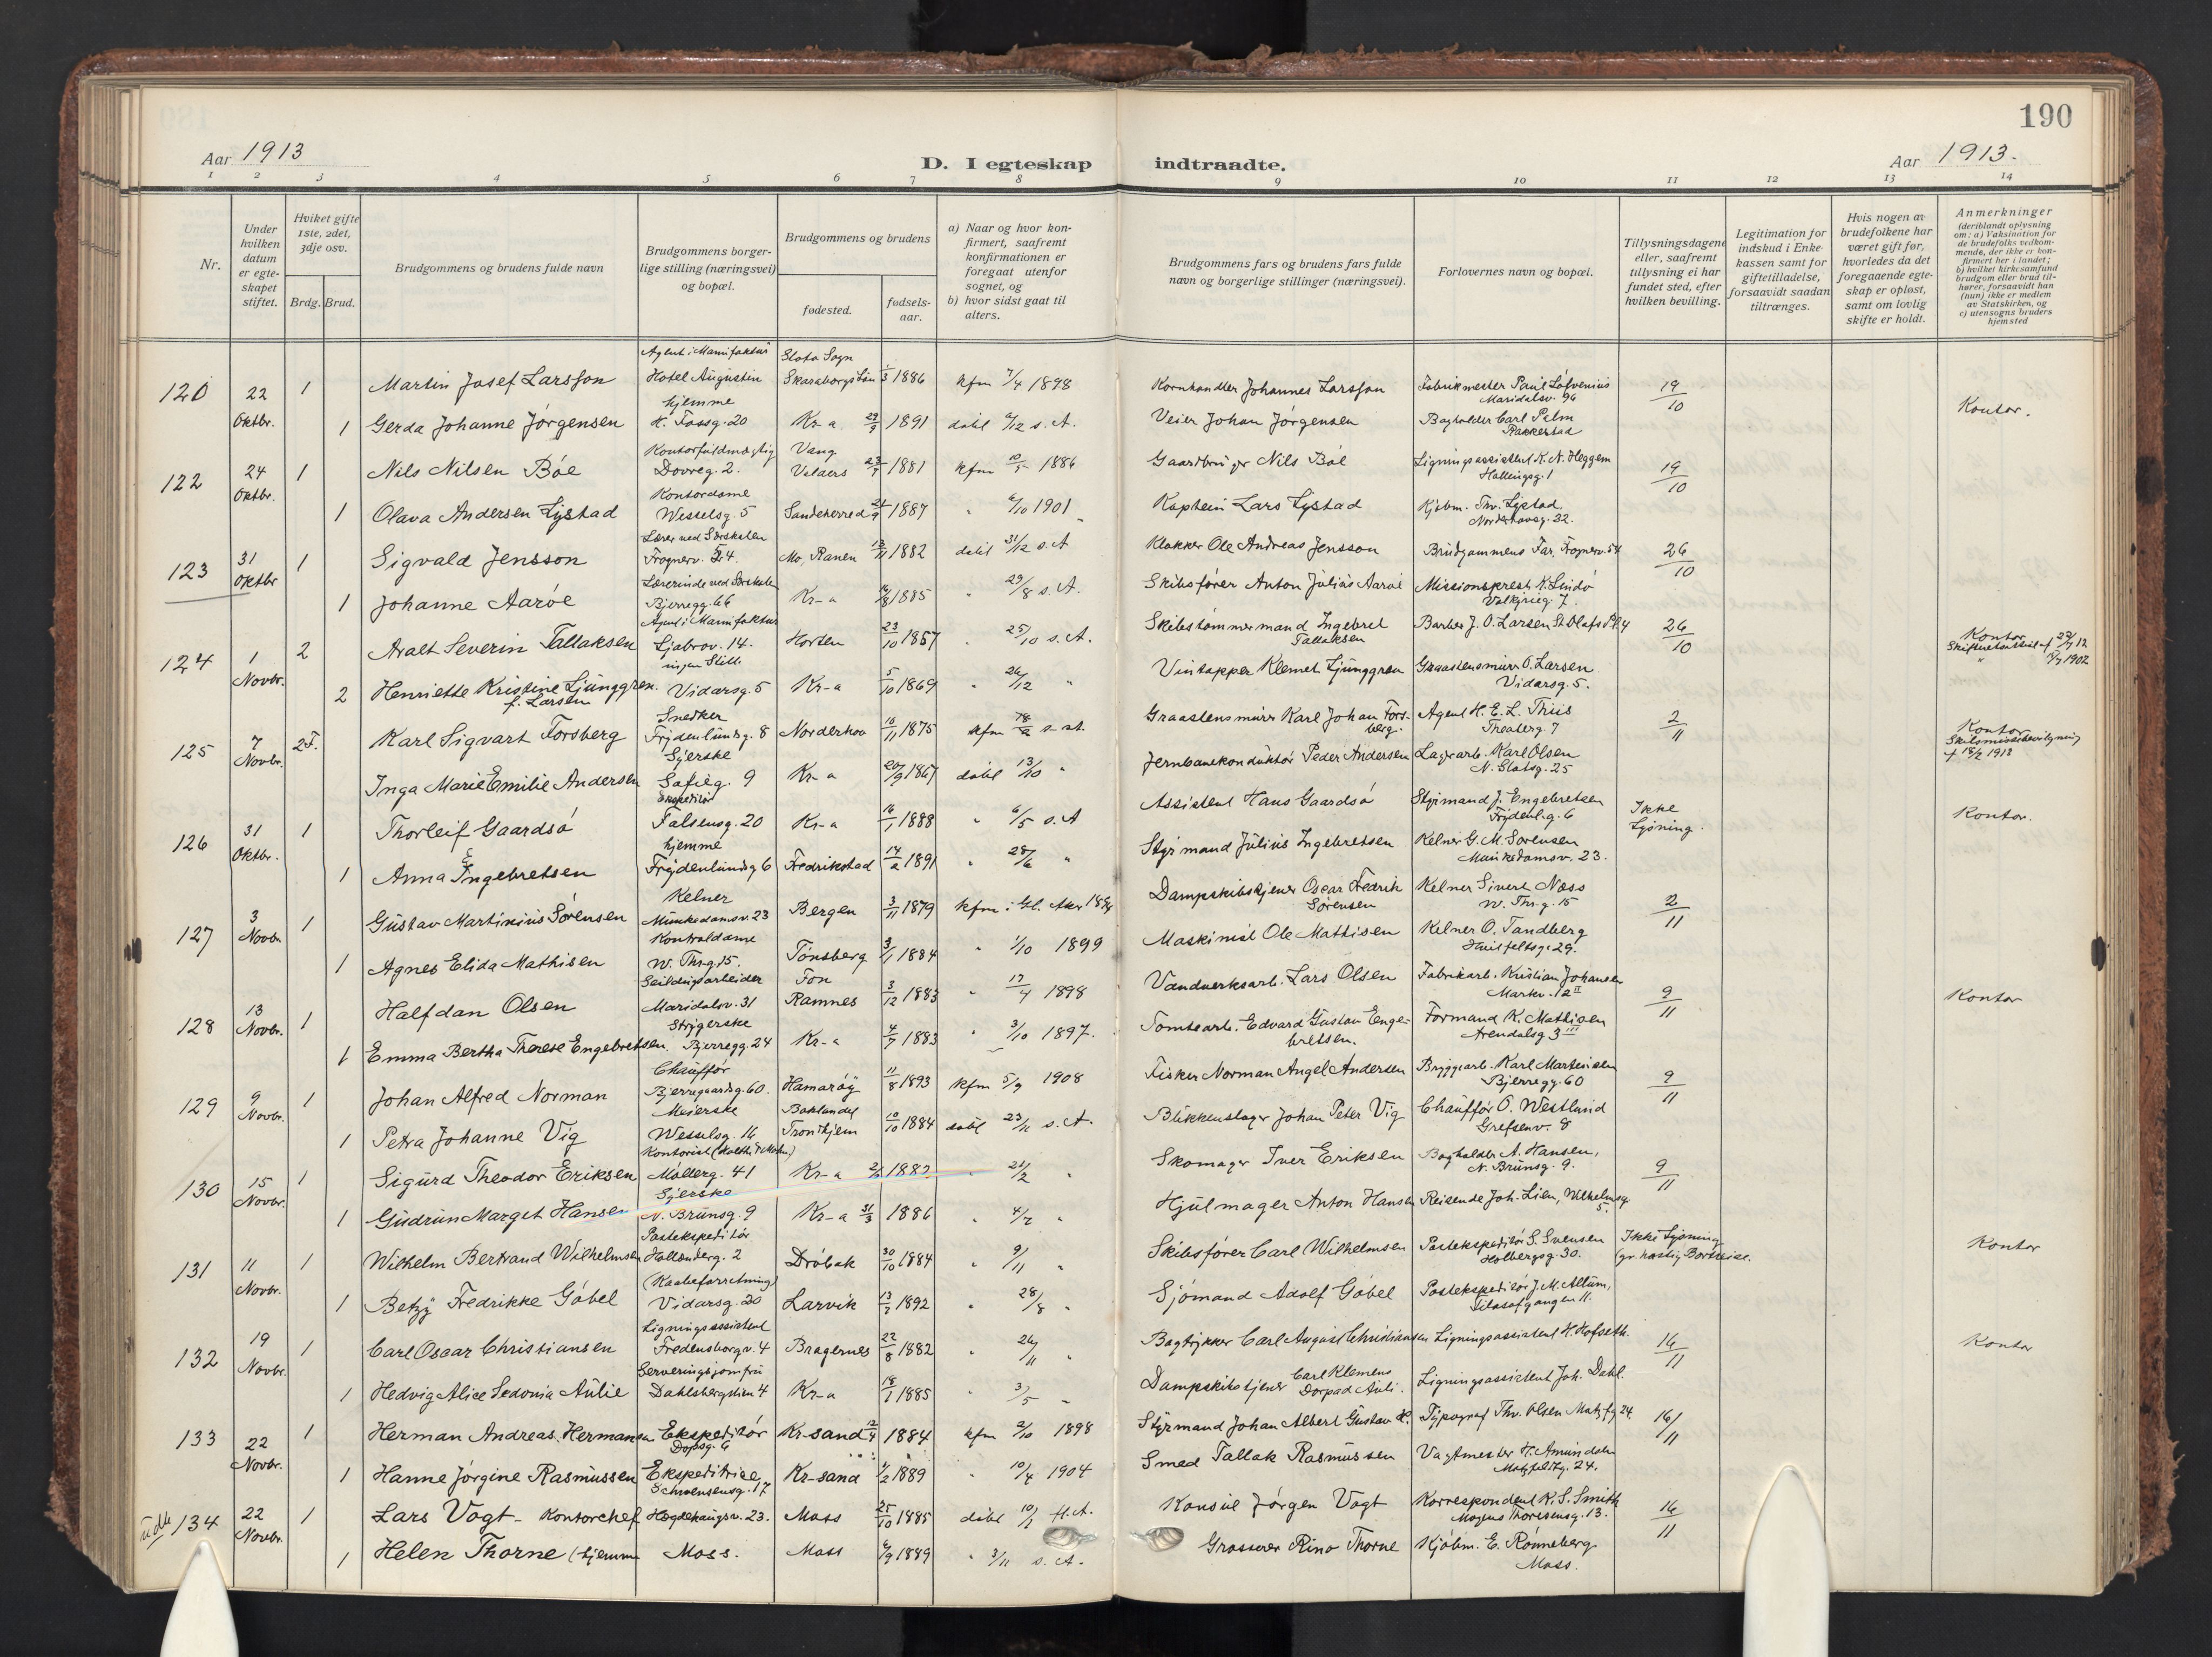 190
Aar 1913
D. I egteskap indtraadte.
Aar 1913.
1 2 3 4 5 6 7 8 9 10 11 12 13 14
Nr.
Under hvilken datum er egteskapet stiftet.
Hviket gifte 1ste, 2det, 3dje osv.
Brdg. Brud.
Brudgommens og brudens fulde navn
Brudgommens borgerlige stilling (næringsvei) og bopæl.
Brudgommens og brudens
fødested.
fødselsaar.
a) Naar og hvor konfirmert, saafremt konfirmationen er foregaat utenfor sognet, og
b) hvor sidst gaat til alters.
Brudgommens fars og brudens fars fulde navn og borgerlige stillinger (næringsvei).
Forlovernes navn og bopæl.
Tillysningsdagene eller, saafremt tillysning ei har fundet sted, efter hvilken bevilling.
Legitimation for indskud i Enkekassen samt for giftetilladelse, forsaavidt saadan tiltrænges.
Hvis nogen av brudefolkene har været gift før, hvorledes da det foregaaende egteskap er opløst, samt om lovlig skifte er holdt.
Anmerkninger (deriblandt oplysning om: a) Vaksination for de brudefolks vedkommende, der ikke er konfirmert her i landet; b) hvilket kirkesamfund brudgom eller brud tilhører, forsaavidt han (hun) ikke er medlem av Statskirken, og c) utensogns bruders hjemsted
120 22 Oktbr. 1 Martin Josef Larsson Agent i Manufaktur Hotel Augustin Slota Sogn Skaraborgs Län 1/3 1886 kfm 7/4 1898 Kornhandler Johannes Larsson Fabrikmester Paul Löfvenius Maridalsv. 96 19/10 Kontor.
1 Gerda Johanne Jørgensen hjemme H. Fossg. 20 Kr-a 29/9 1891 dåbl 6/12 s. A. Veier Johan Jørgensen Bogholder Carl Palm Rakkestad
122 24 Oktbr. 1 Nils Nilsen Bøe Kontorfuldmægtig Dovreg. 2. Vang Valders 1881 kfm 10/5 1886 Gaardbruger Nils Bøe Ligningsassistent K. N. Heggem Hallingsg. 1 19/10
1 Olava Andersen Lystad Kontordame Wesselsg. 5 Sandeherred 21/9 1887 " 6/10 1901 Kaptein Lars Lystad Kjøbm. Thv. Lystad Norderhovsg. 32.
123 31 Oktbr 1 Sigvald Jensson Lærer ved Særskolen Frognerv. 54. Mo, Ranen 13/11 1882 dåbl 31/12 s. A Klokker Ole Andreas Jensson Brudgommens Far, Frognerv. 54 26/10
1 Johanne Aarøe Lærerinde ved Særskolen Bjerregg. 66 Kr-a 1885 " 29/8 s. A. Skibsfører Anton Julius Aarøe Missionsprest K. Lindø Valkyrieg. 7.
124 1 Novbr. 2 Aralt Severin Tallaksen Agent i Manufaktur Ljabrov. 14. Horten 23/10 1857 " 25/10 s. A. Skibstømmermand Ingebret Tallaksen Barber J. O. Larsen St. Olafs Pl. 4 26/10 Kontor
2 Henriette Kristine Ljunggren f. Larsen ingen Still. Vidarsg. 5 Kr-a 5/10 1869 " 26/12 " Vintapper Klemet Ljunggren Graastensmurer O. Larsen Vidarsg. 5.
125 7 Novbr. 2F. Karl Sigvart Forsberg Snedker Frydenlundsg. 8 Norderhov 16/11 1875 kfm s. st. Graastensmurer Karl Johan Forsberg. Agent H. E. L. Thiis Theaterg. 7 2/11 Kontor Skilsmissebevilgning
Inga Marie Emilie Andersen Syerske Sofieg. 9 Kr-a 20/9 1867 dåbl 13/10 " Jernbanekonduktør Peder Andersen Lagerarb. Karl Olsen N. Slotsg. 25
126 31 Oktbr. 1 Thorleif Gaardsø Ekspeditør Falsensg. 20 Kr-a 16/1 1888 " 6/5 s. A Assistent Hans Gaardsø Styrmand J. Engebretsen Frydenl. g. 6 Ikke Lysning. Kontor.
1 Anna Ingebretsen hjemme Frydenlundsg 6 Fredrikstad 14/2 1891 " 28/6 " Styrmand Julius Ingebretsen Kelner G. M. Sørensen Munkedamsv. 23.
127 3 Novbr 1 Gustav Martinius Sørensen Kelner Munkedamsv. 23 Bergen 3/11 1879 kfm i Gl. Aker Dampskibstjener Oscar Fredrik Sørensen Kelner Sivert Næss W. Thr. g. 15 2/11
1 Agnes Elida Mathisen Kontroldame W. Thr. g. 15. Tønsberg 3/1 1884 " 1/10 1899 Maskinist Ole Mathisen Kelner O. Tandberg Huitfeltsg. 29.
128 13 Novbr. 1 Halfdan Olsen Seildugsarbeider Maridalsv. 31 Fon Ramnes 3/12 1883 " 17/4 1898 Vandverksarb. Lars Olsen Fabrikarb. Kristian Johansen Markv. 12 II 9/11 Kontor
1 Emma Bertha Therese Engebretsen. Strygerske Bjerregg. 24 Kr-a 4/7 1883 " 3/10 1897. Tomtearb. Edvard Gustav Engebretsen. Formand K. Mathisen Arendalsg 3 III
129 9 Novbr. 1 Johan Alfred Norman Chauffør Bjerregaardsg. 60. Hamarøy 11/8 1893 kfm 5/9 1908 Fisker Norman Angel Andersen Bryggearb. Karl Martinsen Bjerregg. 60 9/11
1 Petra Johanne Vig Meierske Wesselsg. 16 Baklandet Trondhjem 10/10 1884 dåbl 23/11 s. A. Blikkenslager Johan Peter Vig Chauffør O. Westlund Grefsenv. 8
130 15 Novbr. 1 Sigurd Theodor Eriksen Kontorist Møllerg. 41 Kr-a 1882 " 21/2 " Skomager Iver Eriksen Bogholder A. Hansen, N. Brunsg. 9. 9/11
1 Gudrun Marget Hansen Syerske N. Brunsg. 9 Kr-a 31/3 1886 " 4/7 " Hjulmager Anton Hansen Reisende Joh. Lien, Wilhelmsg 5.
131 11 Novbr. 1 Wilhelm Bertrand Wilhelmsen Postekspeditør Hollenderg. 2 Drøbak 30/10 1884 " 9/11 " Skibsfører Carl Wilhelmsen Postekspeditør S. Svensen Holbergsg. 30. Ikke Lysning (gr. hastig Bortreise. Kontor
1 Betzy Fredrikke Gøbel (Kaabeforretning) Vidarsg. 20 Larvik 1892 " 28/8 " Sjømand Adolf Gøbel Postekspeditør J. M. Altum, Filosofgangen 11.
132 19 Novbr. 1 Carl Oscar Christiansen Ligningsassistent Fredensborgv. 4 Bragernes 22/8 1882 " 26/11 " Bogtrykker Carl August Christiansen Ligningsassistent H. Hofseth. 16/11 Kontor
1 Hedvig Alice Sedonia Aulie Serveringsjomfru Dahlsbergstien 4 Kr-a 18/1 1885 " 3/5 " Dampskibstjener Carl Klemens Auli. Ligningsassistent Joh. Dahl.
133 22 Novbr. 1 Herman Andreas Hermansen Ekspeditør Dopsg. 6 Kr-sand 12/9 1884 kfm 2/10 1898 Styrmand Johan Albert Gustav H. Typograf Thv. Olsen 24 16/11
1 Hanne Jørgine Rasmussen Ekspeditrice Schwensensg. 17 Kr-sand 1889 " 10/4 1904 Smed Tallak Rasmussen Vagtmester H. Amundsen 24.
udtr 134 22 Novbr. 1 Lars Vogt - Kontorchef Hegdehaugsv. 23. Moss 25/10 1885 dåbl Konsul Jørgen Vogt Korrespondent K. S. Smith Magnus Thoresensg. 13. 16/11
1 Helen Thorne (hjemme Moss. Moss 1889 " 3/11 s. A. Grosserer Rino Thorne Kjøbm. E. Rønneberg Moss.